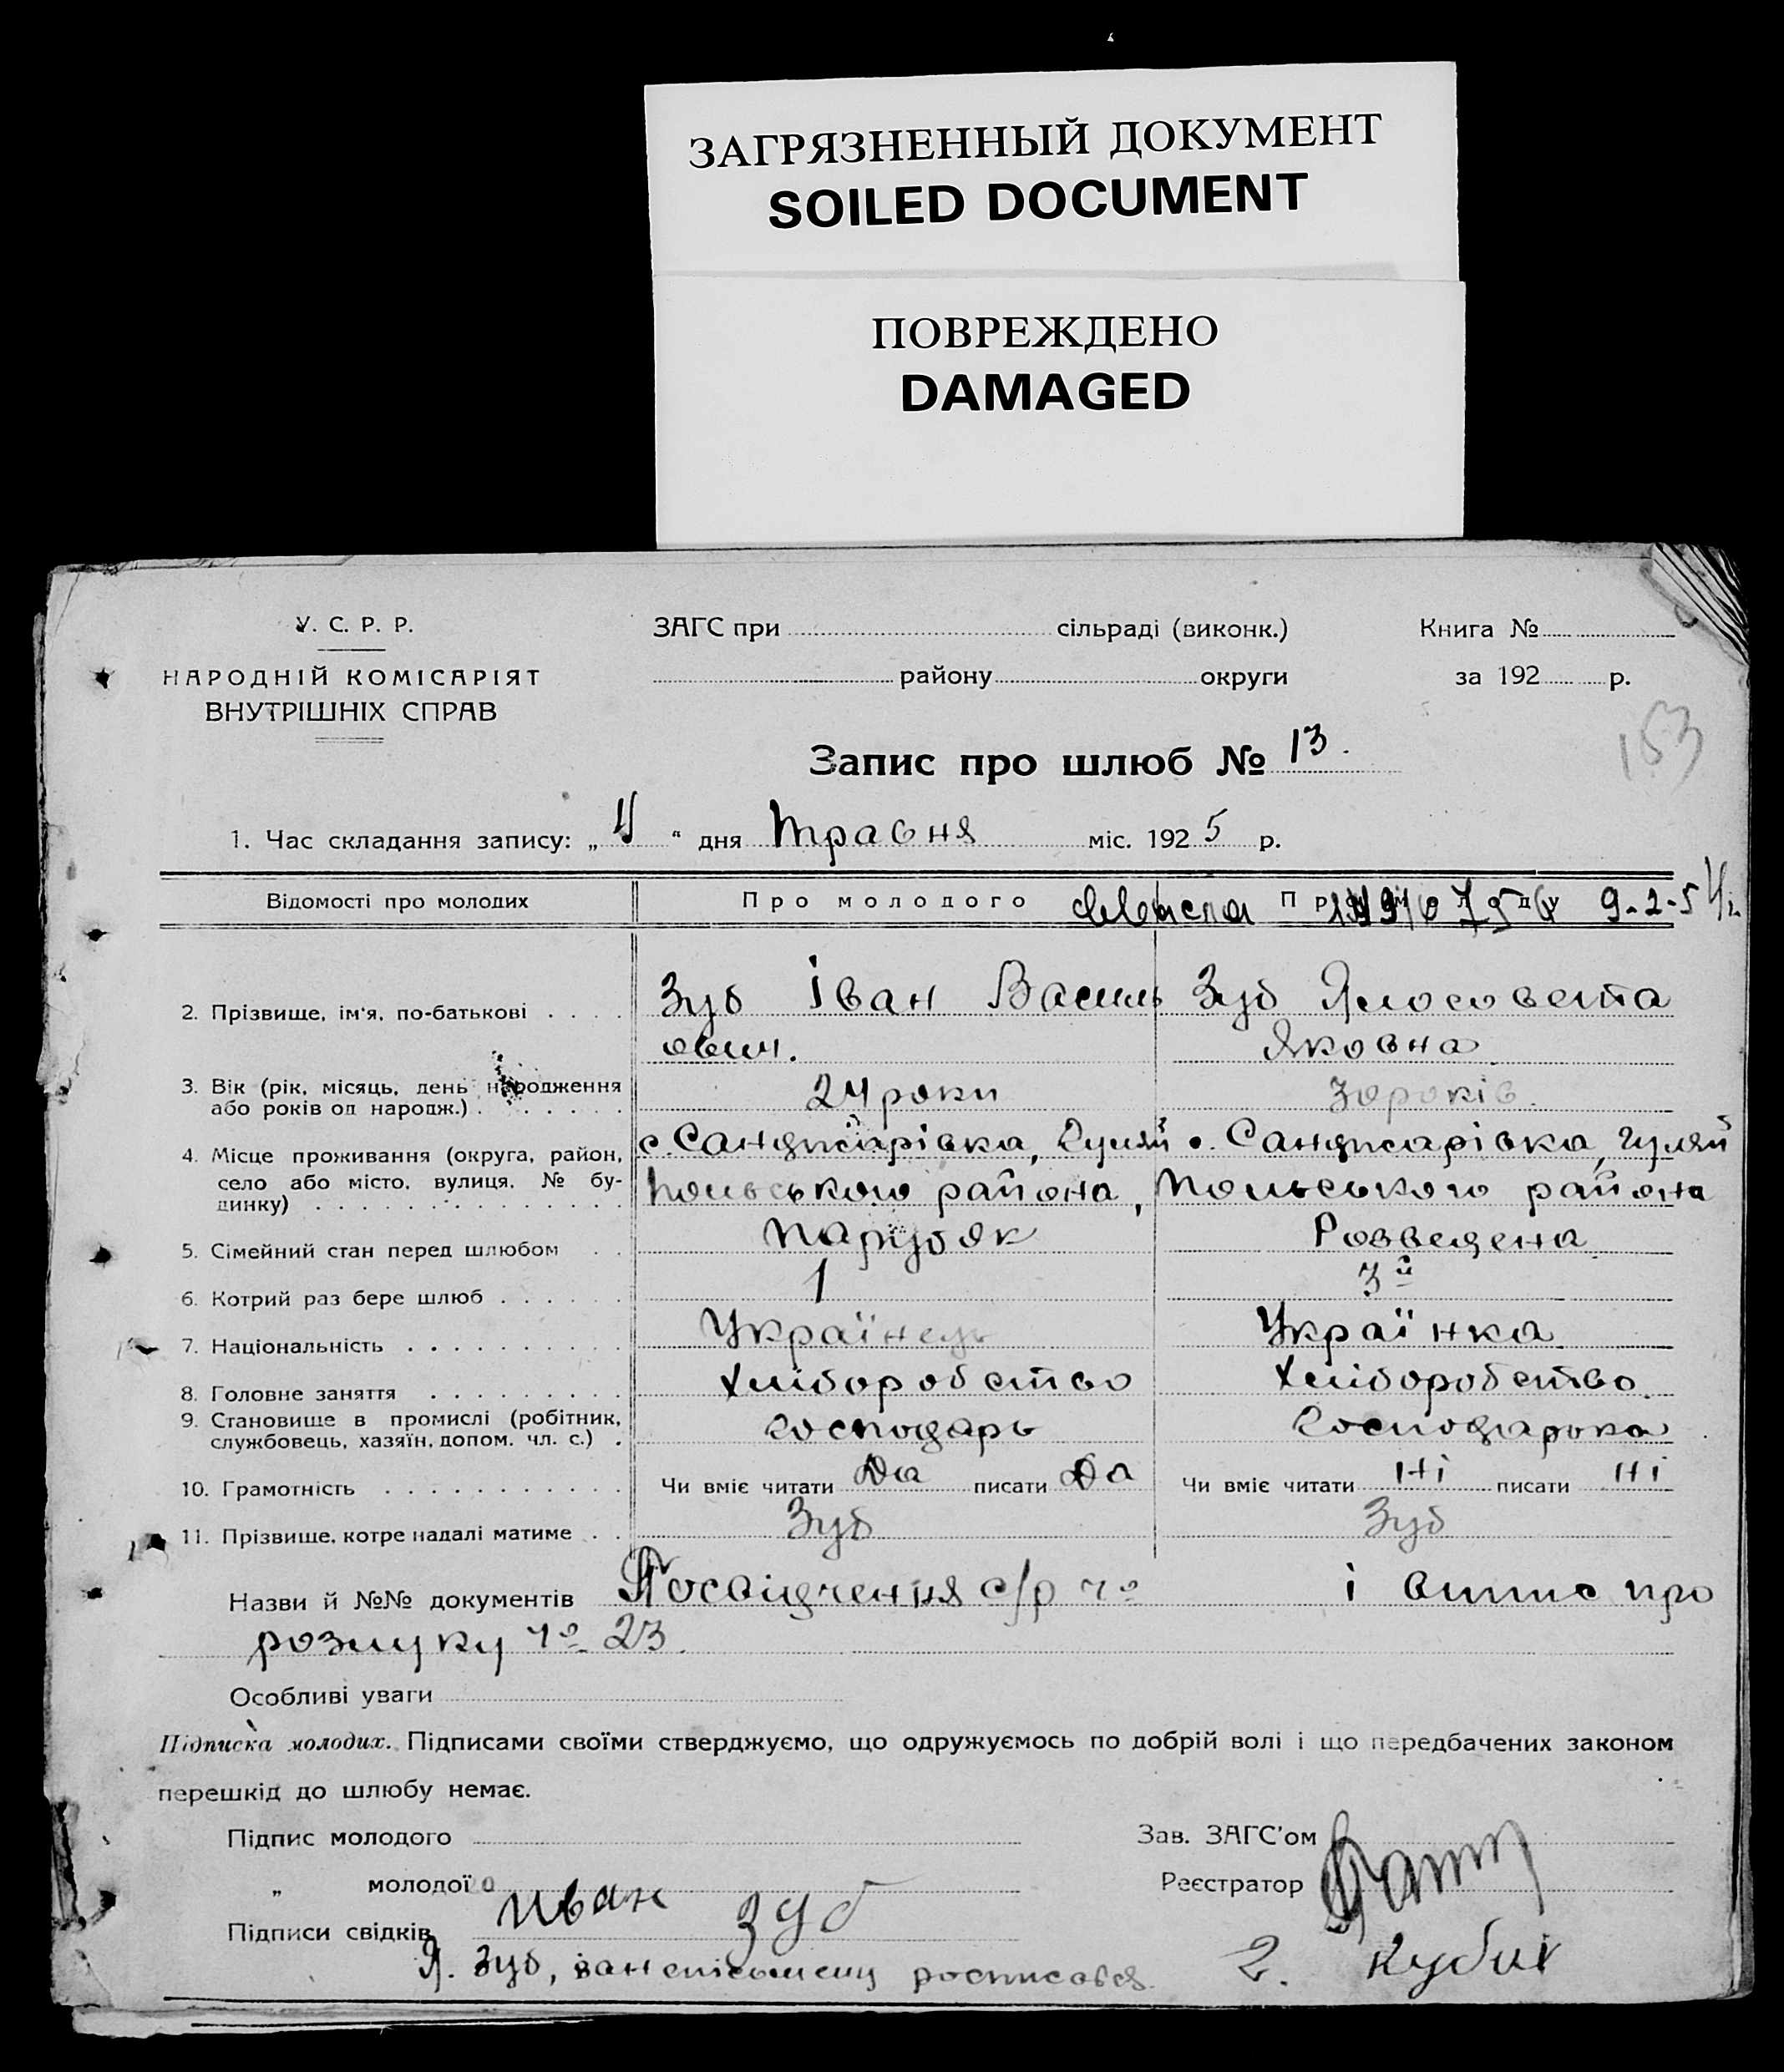 ЗАГРЯЗНЕННЫЙ ДОКУМЕНТ
SOILED DOCUMENT
ПОВРЕЖДЕНО
DAMAGED
У. С. Р. Р.
НАРОДНІЙ КОМІСАРІЯТ
ВНУТРІШНІХ СПРАВ
ЗАГС при сільраді (виконк.)
району округи
Книга №
за 192 р.
153
Запис про шлюб № 13.
1. Час складання запису: „ “ дня травня міс. 1925 р.
Відомості про молодих Про молодого Про молоду 9-2-5
2. Прізвище, ім'я, по-батькові Зуб Іван Василь Зуб
ович. Яковна
3. Вік (рік, місяць, день народження або років од народж.) 24 роки 30 років
4. Місце проживання (округа, район, село або місто, вулиця, № будинку) с. Санджарівка, Гуляй с. Санджарівка, Гуляй
польського района, польського района
5. Сімейний стан перед шлюбом парубок Розведена
6. Котрий раз бере шлюб 1 3й
7. Національність Українець Українка
8. Головне заняття Хліборобство Хліборобство
9. Становище в промислі (робітник, службовець, хазяїн, допом. чл. с.) господарь господарка
10. Грамотність Чи вміє читати Да писати Да Чи вміє читати Ні писати Ні
11. Прізвище, котре надалі матиме Зуб Зуб
Назви й №№ документів Посвідчення с/р № і випис про
розлуку № 23.
Особливі уваги
Підписка молодих. Підписами своїми стверджуємо, що одружуємось по добрій волі і що передбачених законом
перешкід до шлюбу немає.
Підпис молодого
„ молодої
Підписи свідків
Иван Зуб
Я. Зуб, росписався
Зав. ЗАГС'ом
Реєстратор
2.